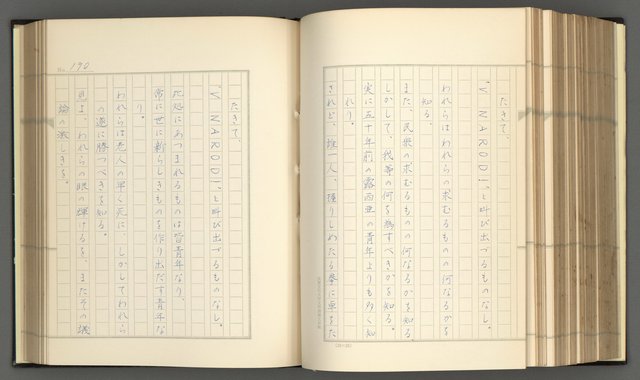 たきて、
‘V NAROD!’と叫び出づるものなし。
われらはわれらの求むるものの何なるかを
知る、
また、民衆の求むるものの何なるかを知る、
しかして、我等の何を為すべきかを知る。
実に五十年前の露西亜の青年よりも多く知
れり。
されど、誰一人、握りしめたる拳に卓をた
No. 190
たきて、
‘V NAROD!’と叫び出づるものなし。
此処にあつまれるものは皆青年なり、
常に世に新らしきものを作り出だす青年な
り。
われらは老人の早く死に、しかしてわれら
の遂に勝つべきを知る。
見よ、われらの眼の輝けるを、またその議
論の激しきを。